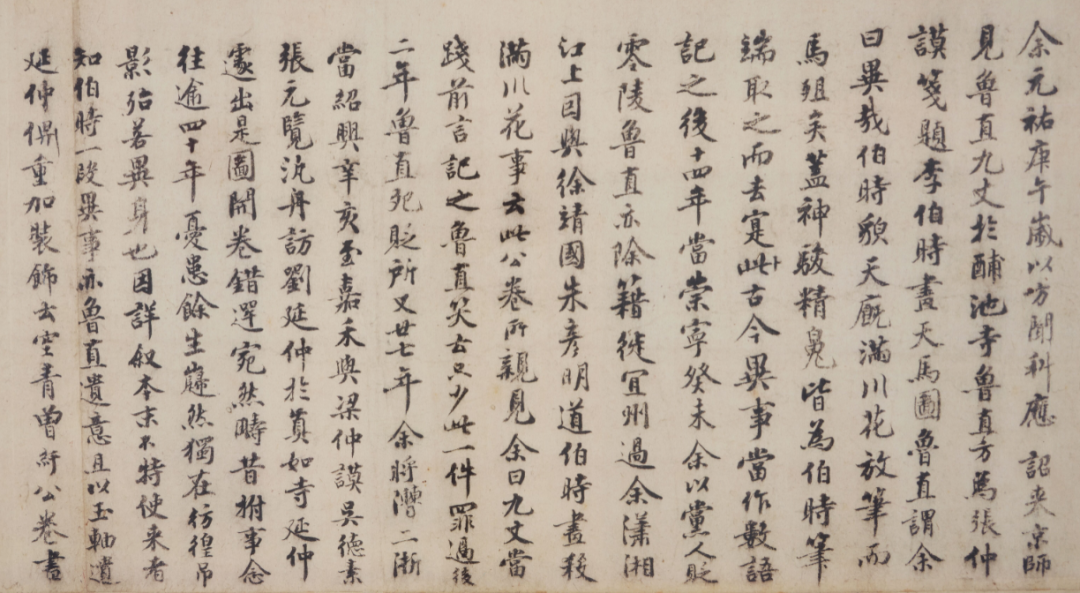 余元祐庚午歲以方聞科應 詔来京師
見魯直九丈於酺池寺魯直方為張仲
謨箋題李伯時畫天馬圖魯直謂余
曰異哉伯時貌天廐滿川花放筆而
馬殂矣蓋神駿精魄皆為伯時筆
端取之而去寔此古今異事當作數語
記之後十四年當崇寧癸未余以黨人貶
零陵魯直亦除籍徙宜州過余瀟湘
江上因與徐靖國朱彥明道伯時畫殺
滿川花事云此公卷所親見余曰九丈當
踐前言記之魯直笑云只少此一件罪過後
二年魯直死貶所又廿七年余將漕二浙
當紹興辛亥至嘉禾與梁仲謨吳德素
張元覽汎舟訪劉延仲於真如寺延仲
遽出是圖開卷錯愕宛然疇昔拊事念
往逾四十年憂患餘生巋然獨在彷徨吊
影殆若異身也因詳敘本末不特使来者
知伯時一段異事亦魯直遺意且以玉軸遺
延仲俾重加裝飾云空青曾紆公卷書